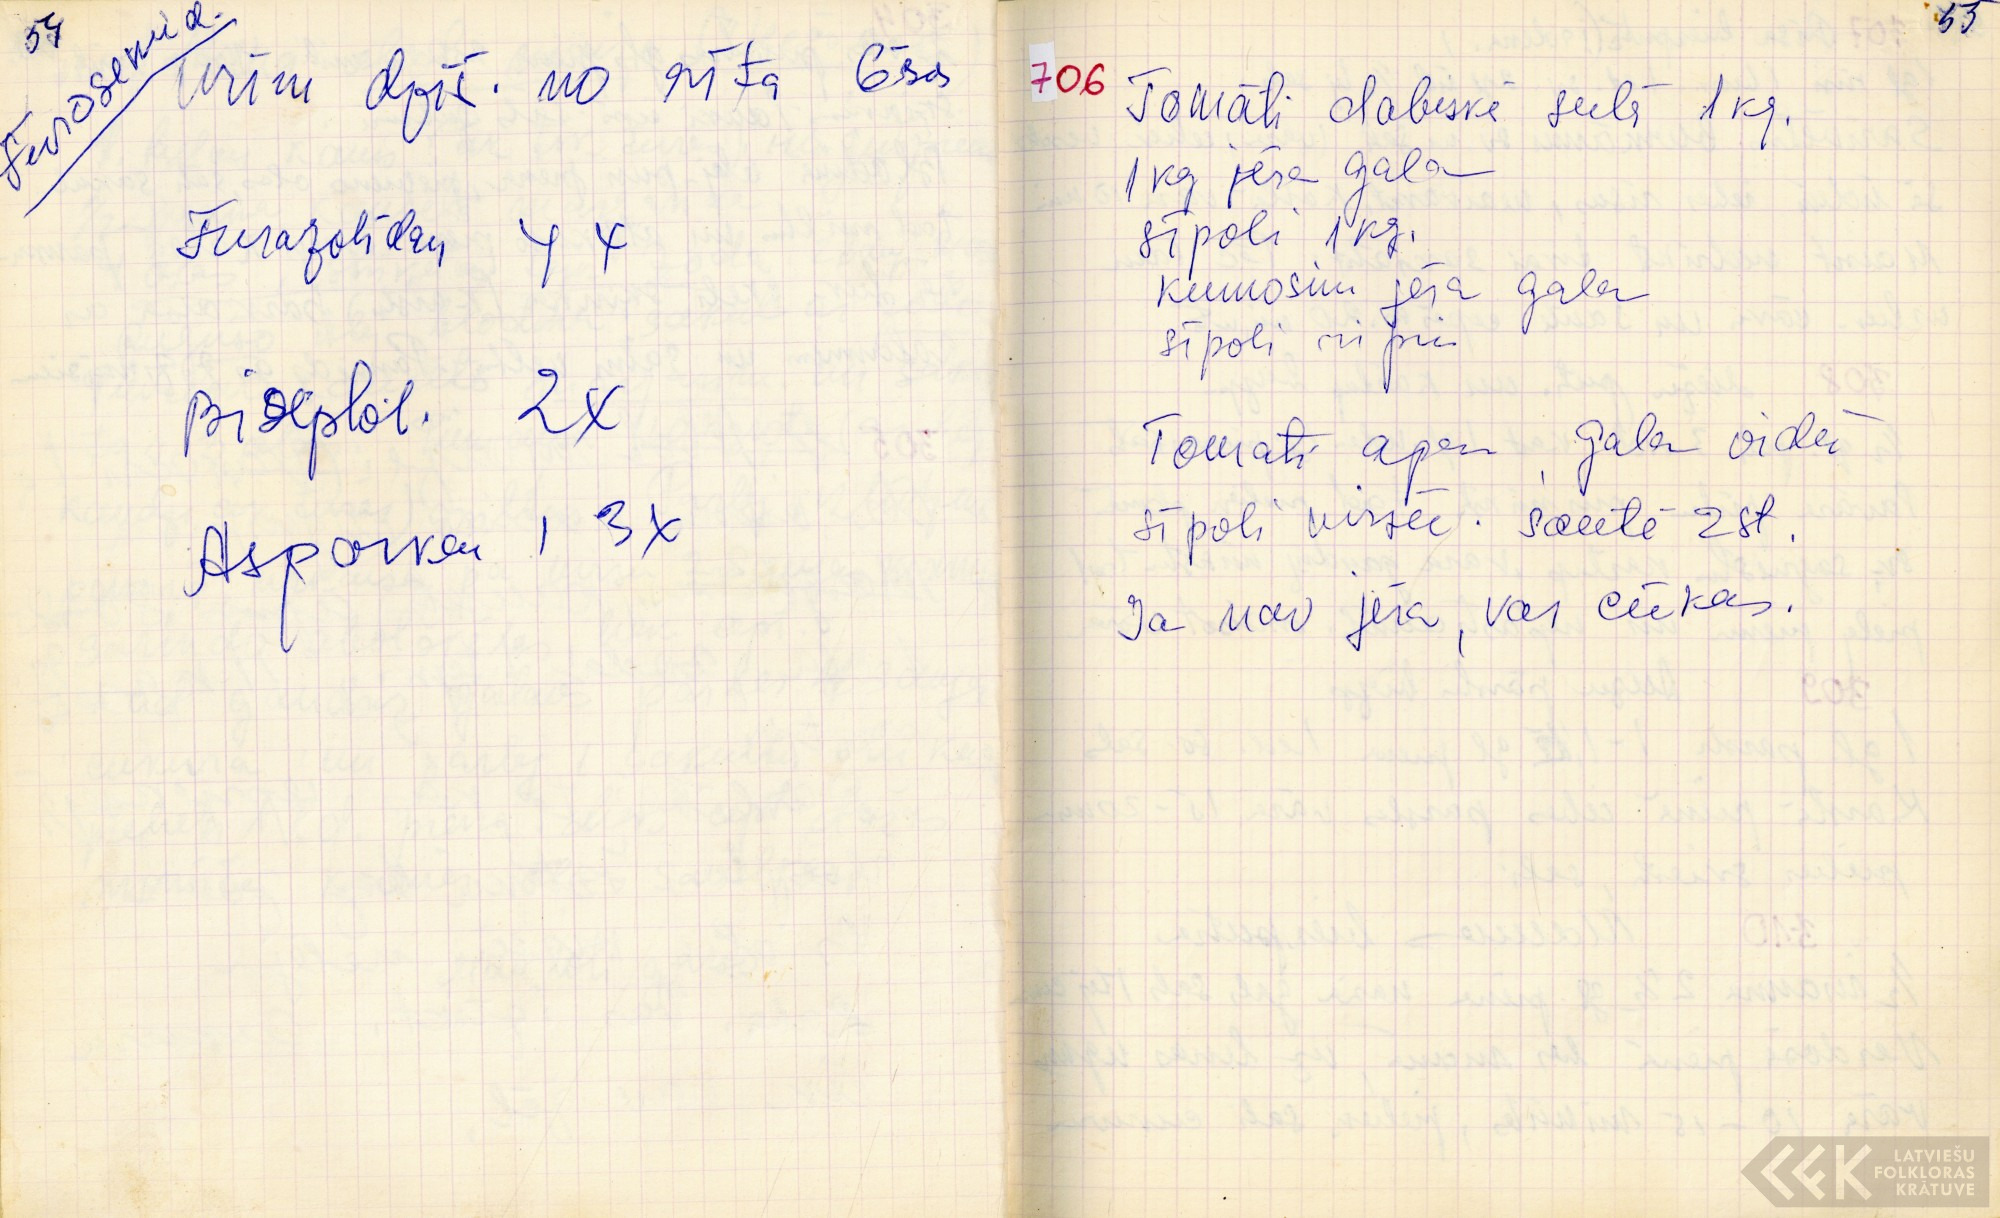 54
Furosemid.
Urīn dziļ. no rīta 6šos
Furazolidon 4 x
Biseptol. 2x
Asparkam 1 3x
55
706
Tomāti dabiskē sulā 1 kg.
1 kg jēra gaļa
sīpoli 1 kg.
kumosiņ jēra gaļa
sīpoli ripiņ
Tomāti apa , gaļa vidū
sīpoli virsū. Sautē 2 st.
Ja nav jēra, var cūkas.
LATVIEŠU
FOLKLORAS
KRĀTUVE